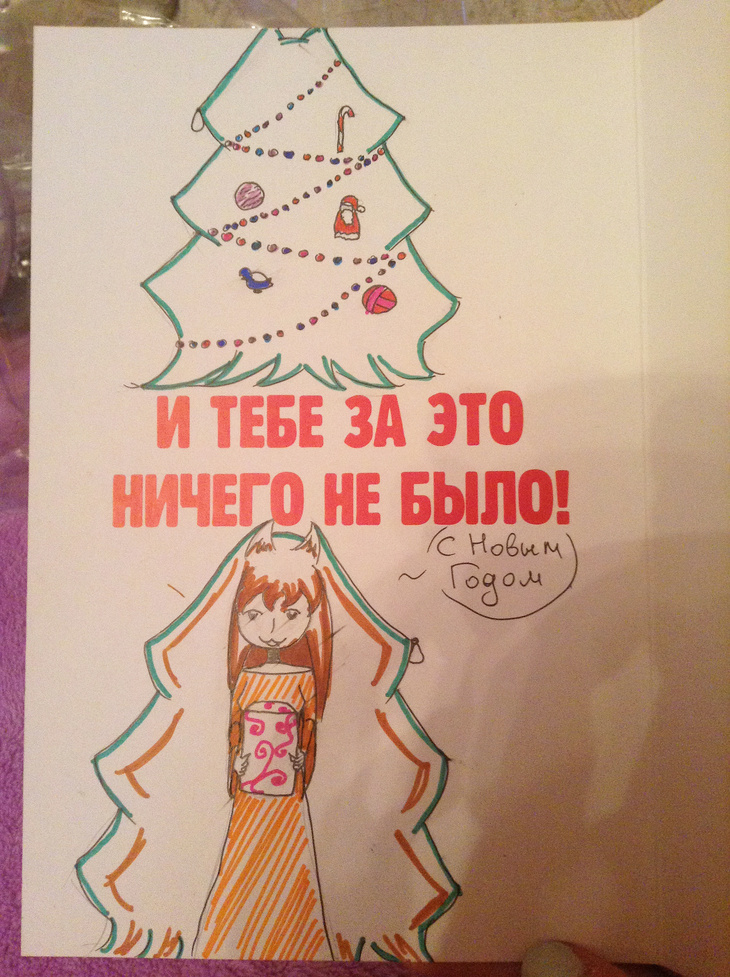 И ТЕБЕ ЗА ЭТО
НИЧЕГО НЕ БЫЛО!
С Новым
~ Годом